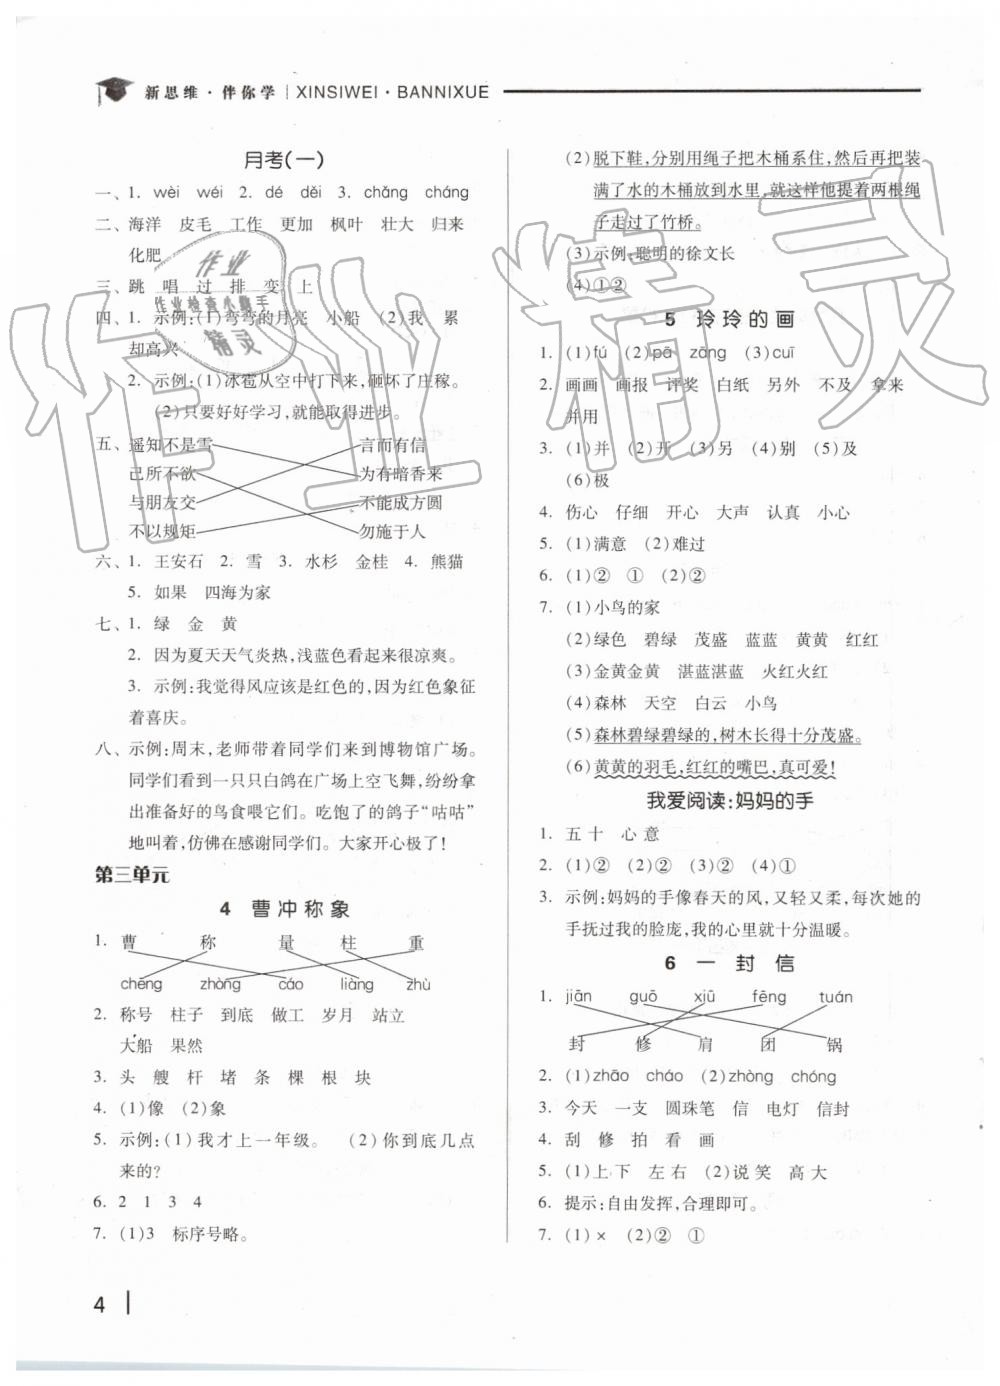 新思维·伴你学 | XINSIWEI·BANNIXUE
月考(一)
一、1. wèi wéi 2. dé děi 3. chǎng cháng
二、海洋 皮毛 工作 更加 枫叶 壮大 归来
化肥
三、跳 唱 过 排 变 上
四、1. 示例:(1)弯弯的月亮 小船 (2)我 累
却高兴
2. 示例:(1)冰雹从空中打下来,砸坏了庄稼。
(2)只要好好学习,就能取得进步。
五、遥知不是雪 言而有信
己所不欲 为有暗香来
与朋友交 不能成方圆
不以规矩 勿施于人
六、1. 王安石 2. 雪 3. 水杉 金桂 4. 熊猫
5. 如果 四海为家
七、1. 绿 金 黄
2. 因为夏天天气炎热,浅蓝色看起来很凉爽。
3. 示例:我觉得风应该是红色的,因为红色象征
着喜庆。
八、示例:周末,老师带着同学们来到博物馆广场。
同学们看到一只只白鸽在广场上空飞舞,纷纷拿
出准备好的鸟食喂它们。吃饱了的鸽子“咕咕”
地叫着,仿佛在感谢同学们。大家开心极了!
第三单元
4 曹冲称象
1. 曹 称 量 柱 重
chēng zhòng cáo liàng zhù
2. 称号 柱子 到底 做工 岁月 站立
大船 果然
3. 头 艘 杆 堵 条 棵 根 块
4. (1)像 (2)象
5. 示例:(1)我才上一年级。 (2)你到底几点
来的?
6. 2 1 3 4
7. (1)3 标序号略。
(2)脱下鞋,分别用绳子把木桶系住,然后再把装
满了水的木桶放到水里,就这样他提着两根绳
子走过了竹桥。
(3)示例:聪明的徐文长
(4)①②
5 玲玲的画
1. (1)fú (2)pā zāng (3)cuī
2. 画画 画报 评奖 白纸 另外 不及 拿来
并用
3. (1)并 (2)开 (3)另 (4)别 (5)及
(6)极
4. 伤心 仔细 开心 大声 认真 小心
5. (1)满意 (2)难过
6. (1)② ① (2)②
7. (1)小鸟的家
(2)绿色 碧绿 茂盛 蓝蓝 黄黄 红红
(3)金黄金黄 湛蓝湛蓝 火红火红
(4)森林 天空 白云 小鸟
(5)森林碧绿碧绿的,树木长得十分茂盛。
(6)黄黄的羽毛,红红的嘴巴,真可爱!
我爱阅读:妈妈的手
1. 五十 心意
2. (1)② (2)② (3)② (4)①
3. 示例:妈妈的手像春天的风,又轻又柔,每次她的
手抚过我的脸庞,我的心里就十分温暖。
6 一封信
1. jiān guō xiū fēng tuán
封 修 肩 团 锅
2. (1)zhāo cháo (2)zhòng chóng
3. 今天 一支 圆珠笔 信 电灯 信封
4. 刮 修 拍 看 画
5. (1)上 下 左 右 (2)说 笑 高 大
6. 提示:自由发挥,合理即可。
7. (1)× (2)② ①
4
作业
作业检查小助手
精灵
作业精灵